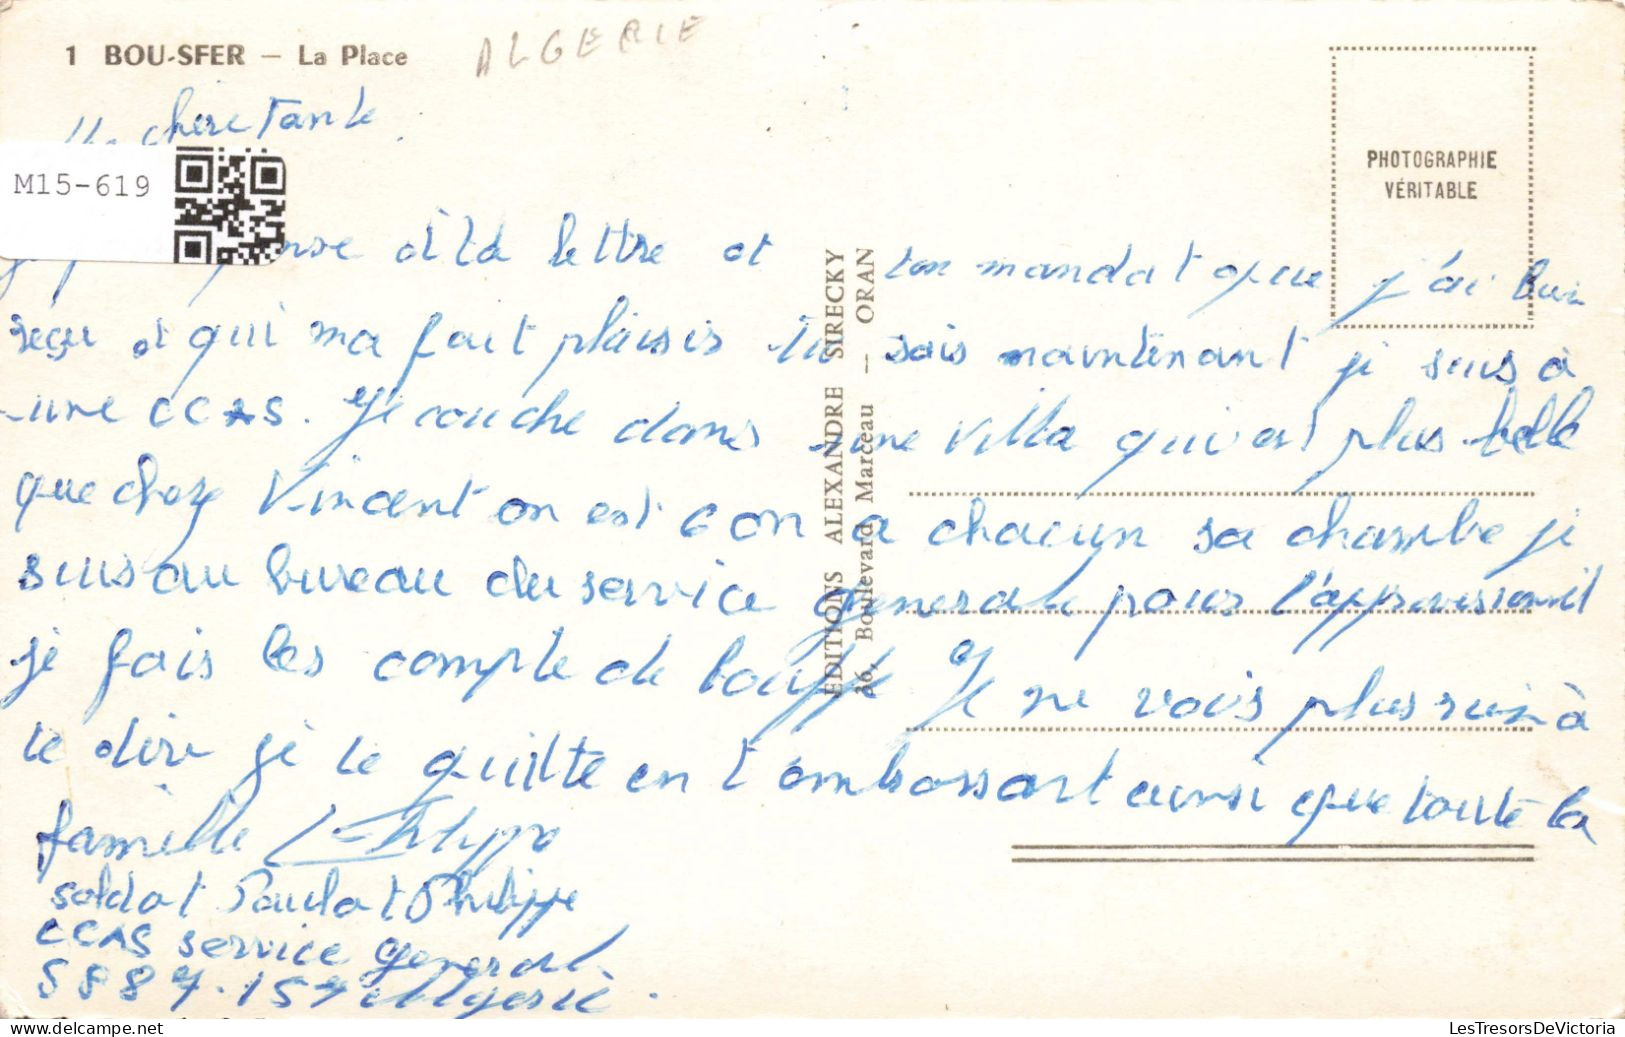 1 BOU-SFER — La Place
ALGERIE
PHOTOGRAPHIE
VÉRITABLE
M15-619
Ma chere Tante
à ta lettre et ton mandat que j'ai bien
reçu et qui ma fait plaisir tu sais maintenant je suis à
une CCAS. Je couche dans une villa qui est plus belle
que chez Vincent on est con a chacun sa chambre je
suis au bureau du service generale pour l'approvisionnent
je fais les compte de bouffe Je ne vois plus rien à
te dire je te quitte en t'embassant ainsi que toute la
famille Philippe
soldat Paulat Philippe
CCAS service general
SP 87.157 Algerie.
EDITIONS ALEXANDRE SIRECKY
26, Boulevard Marceau — ORAN
LesTresorsDeVictoria